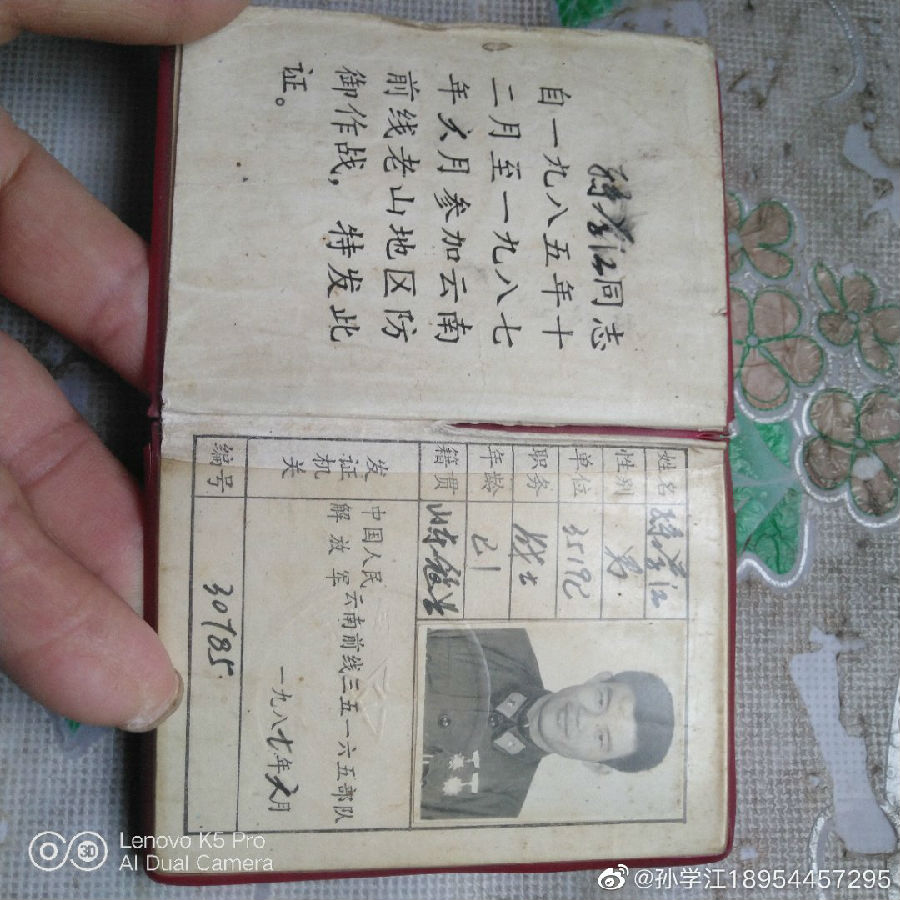 孙学江同志
自一九八五年十
二月至一九八七
年六月参加云南
前线老山地区防
御作战，特发此
证。
姓名 孙学江
性别 男
单位
职务 战士
年龄 21
籍贯 山东
发证机关
中国人民解放军 云南前线三五一六五部队
一九八七年六月
编号 30785
Lenovo K5 Pro
AI Dual Camera
@孙学江18954457295